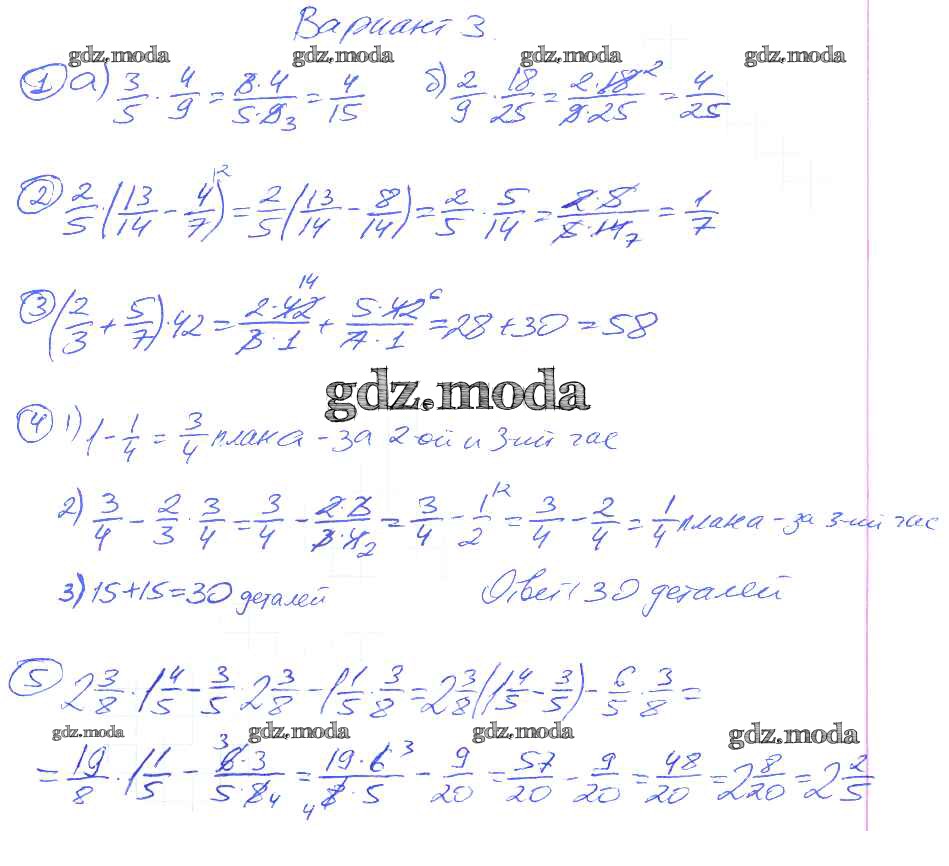 Вариант 3.
gdz.moda gdz.moda gdz.moda gdz.moda
① а) 3/5 · 4/9 = 3·4/5·9 3 = 4/15 б) 2/9 · 18/25 = 2·18 2/9·25 = 4/25
② 2/5 · (13/14 − 4/7 |2) = 2/5 (13/14 − 8/14) = 2/5 · 5/14 = 2·5/5·14 7 = 1/7
③ (2/3 + 5/7) · 42 = 2·42 14/3·1 + 5·42 6/7·1 = 28 + 30 = 58
gdz.moda
④ 1) 1 − 1/4 = 3/4 плана – за 2-ой и 3-ий час
2) 3/4 − 2/3 · 3/4 = 3/4 − 2·3/3·4 2 = 3/4 − 1/2 |2 = 3/4 − 2/4 = 1/4 плана – за 3-ий час
3) 15 + 15 = 30 деталей Ответ: 30 деталей
⑤ 2 3/8 · 1 4/5 − 3/5 · 2 3/8 − 1 1/5 · 3/8 = 2 3/8 (1 4/5 − 3/5) − 6/5 · 3/8 =
gdz.moda gdz.moda gdz.moda gdz.moda
= 19/8 · 1 1/5 − 3 6·3/5·8 4 = 19·6 3/4 8·5 − 9/20 = 57/20 − 9/20 = 48/20 = 2 8/20 = 2 2/5